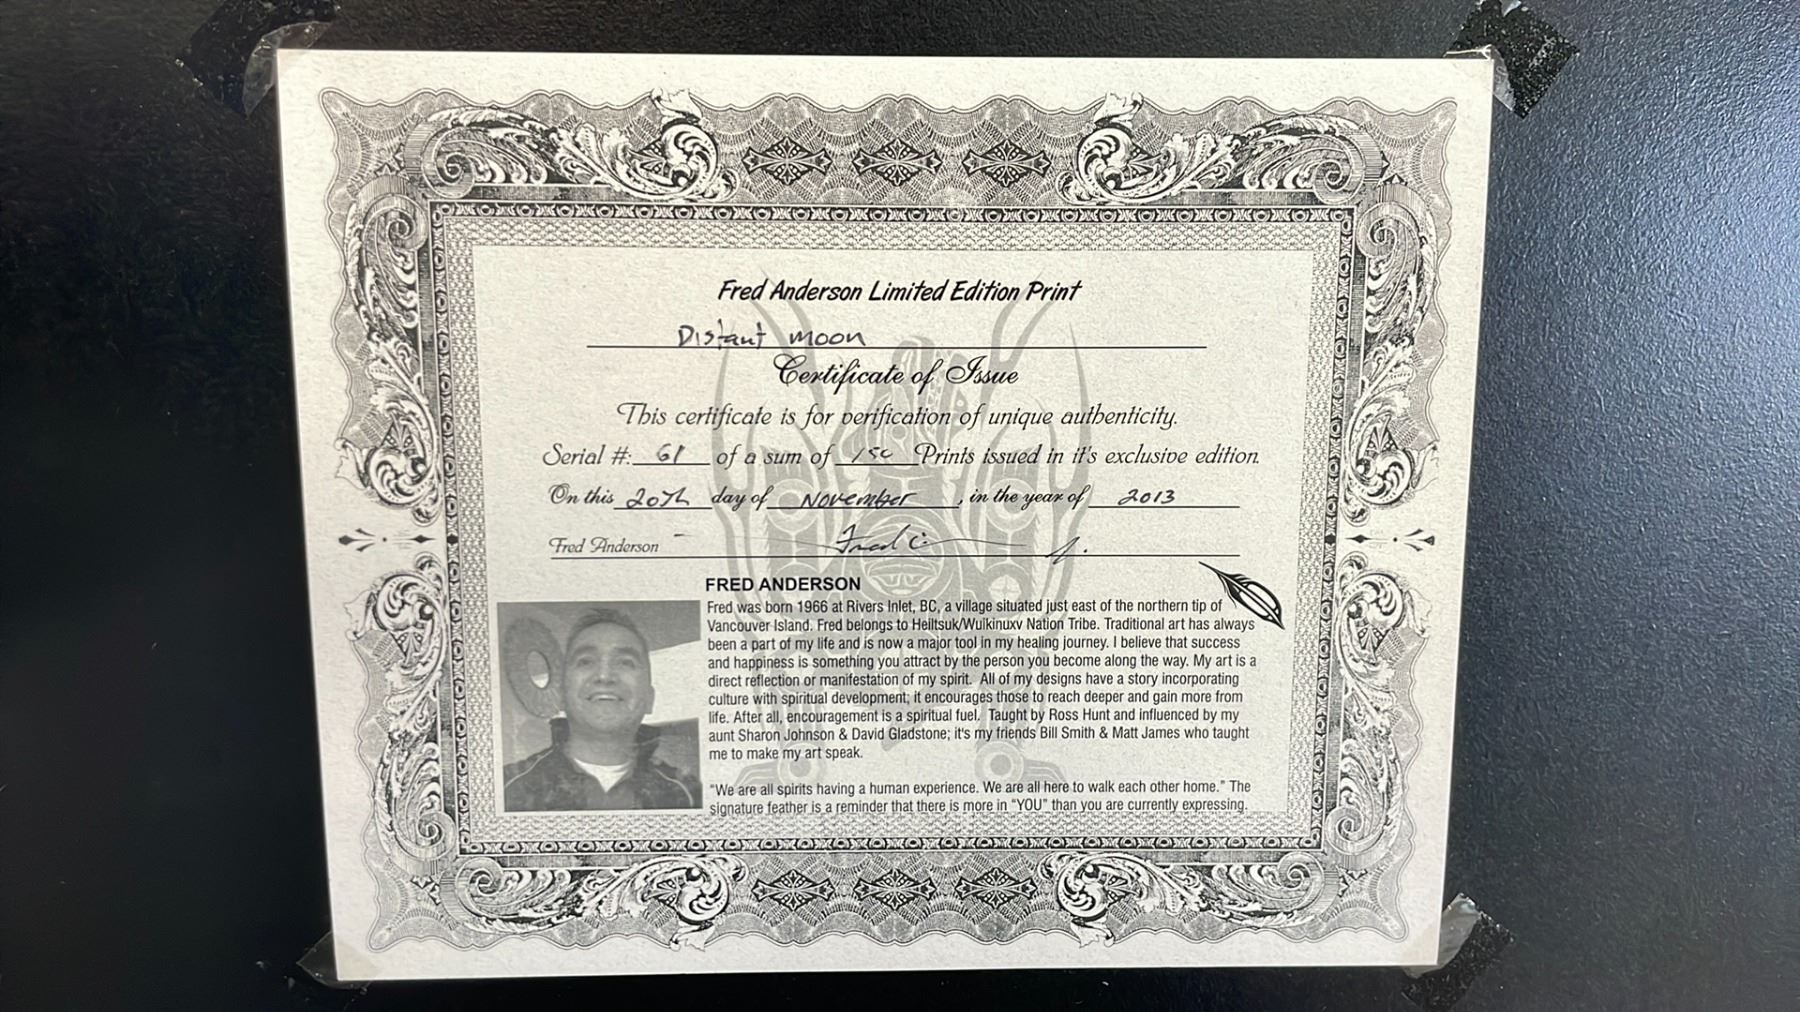 Fred Anderson Limited Edition Print
Distant moon
Certificate of Issue
This certificate is for verification of unique authenticity.
Serial #: 61 of a sum of 150 Prints issued in it's exclusive edition.
On this 20th day of November, in the year of 2013
Fred Anderson
FRED ANDERSON
Fred was born 1966 at Rivers Inlet, BC, a village situated just east of the northern tip of
Vancouver Island. Fred belongs to Heiltsuk/Wuikinuxv Nation Tribe. Traditional art has always
been a part of my life and is now a major tool in my healing journey. I believe that success
and happiness is something you attract by the person you become along the way. My art is a
direct reflection or manifestation of my spirit. All of my designs have a story incorporating
culture with spiritual development; it encourages those to reach deeper and gain more from
life. After all, encouragement is a spiritual fuel. Taught by Ross Hunt and influenced by my
aunt Sharon Johnson & David Gladstone; it's my friends Bill Smith & Matt James who taught
me to make my art speak.
"We are all spirits having a human experience. We are all here to walk each other home." The
signature feather is a reminder that there is more in "YOU" than you are currently expressing.